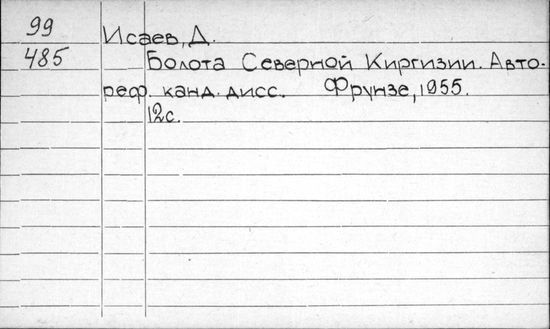 99
Исаев, Д.
485
Болота Северной Киргизии. Авто-
реф. канд. дисс. Фрунзе, 1955.
12с.